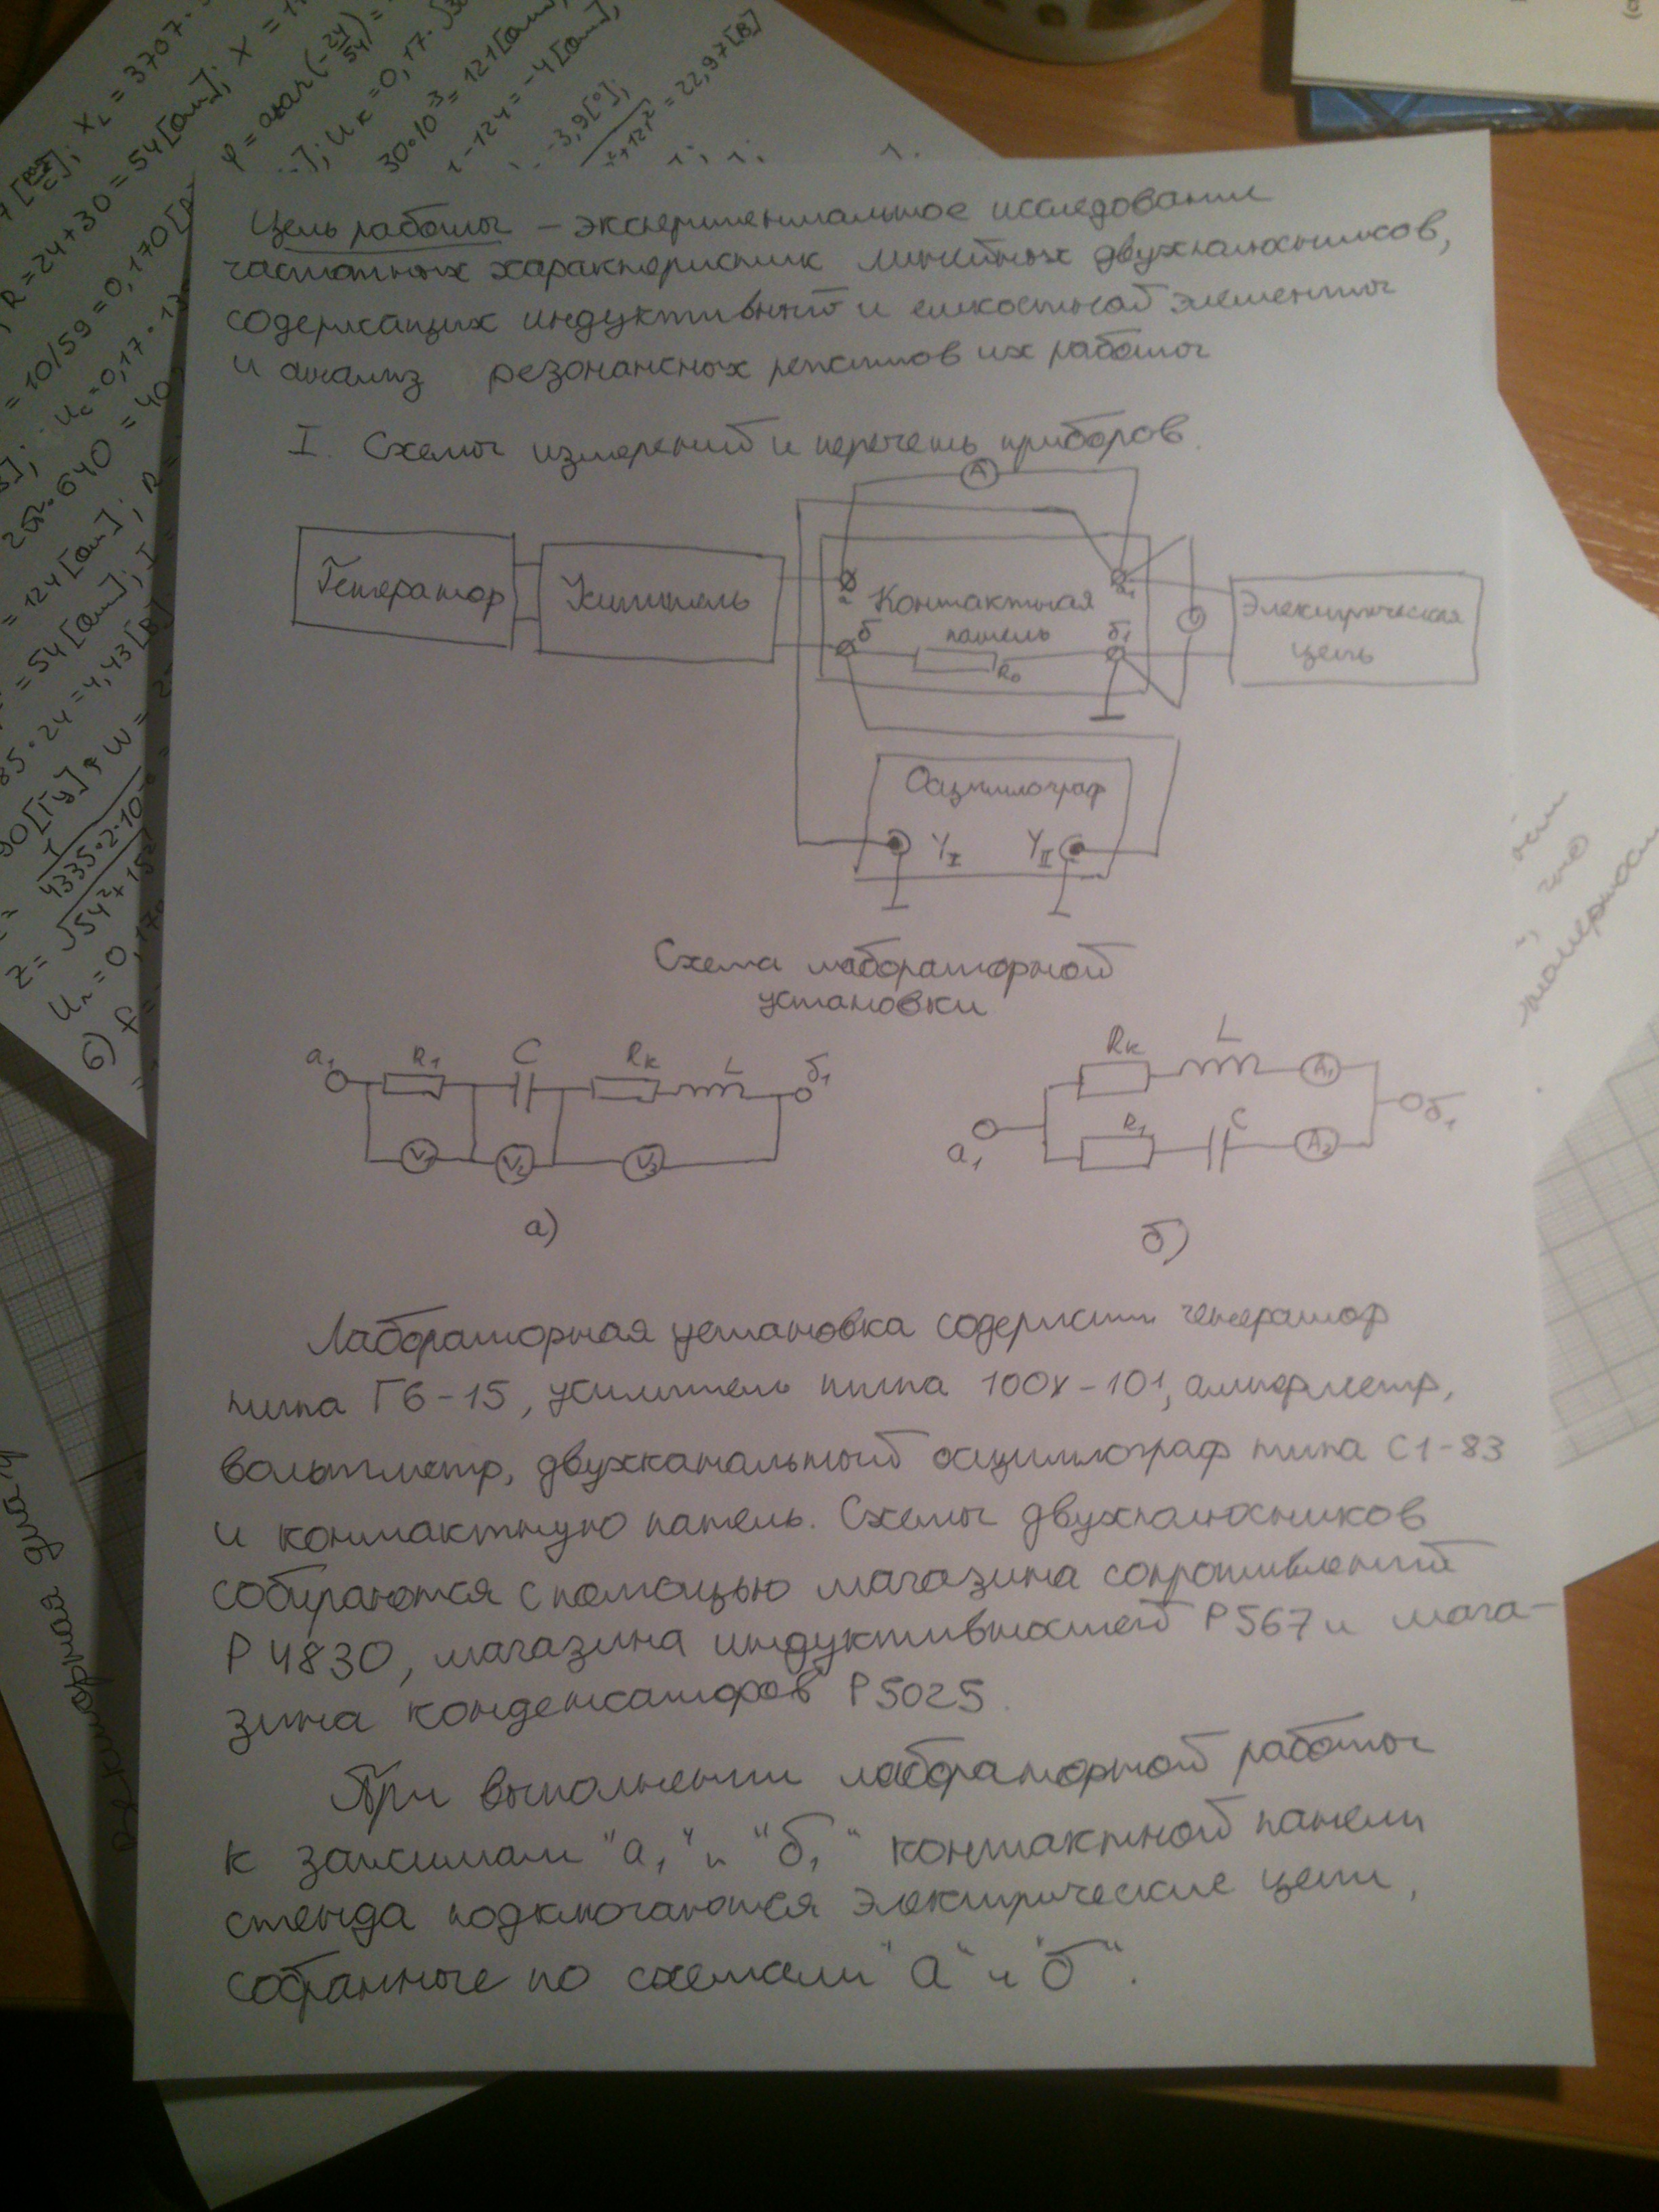 Цель работы – экспериментальное исследование
частотных характеристик линейных двухполюсников,
содержащих индуктивный и емкостной элементы
и анализ резонансных режимов их работы
I. Схемы измерений и перечень приборов.
A
Генератор
Усилитель
а
а₁
Контактная
панель
б
б₁
R₀
V
Электрическая
цепь
Осциллограф
Y_I
Y_II
Схема лабораторной
установки
а₁ R₁ C Rк L б₁
V₁ V₂ V₃
а)
Rк L A₁
а₁ R₁ C A₂ б₁
б)
Лабораторная установка содержит генератор
типа Г6-15, усилитель типа 100У-101, амперметр,
вольтметр, двухканальный осциллограф типа С1-83
и контактную панель. Схемы двухполюсников
собираются с помощью магазина сопротивлений
Р4830, магазина индуктивностей Р567 и мага-
зина конденсаторов Р5025.
При выполнении лабораторной работы
к зажимам "а₁" и "б₁" контактной панели
стенда подключаются электрические цепи,
собранные по схемам "а" и "б".
X_L = 3707·
R = 24+30 = 54 [Ом]; X =
φ = (-24/54) =
= 10/59 = 0,170 [
; Uк = 0,17·
30·10⁻³ = 121 [Ом]
1-124 = -4 [Ом]
-3,9 [°];
= 22,97 [В]
Uc = 0,17·
640 = 40
= 124 [Ом]; R =
= 54 [Ом]; I =
85·24 = 4,43 [В]
90 [Гц]; ω = 2
4335·2·10
Z = √54²+15²
U = 0,170
6) f =